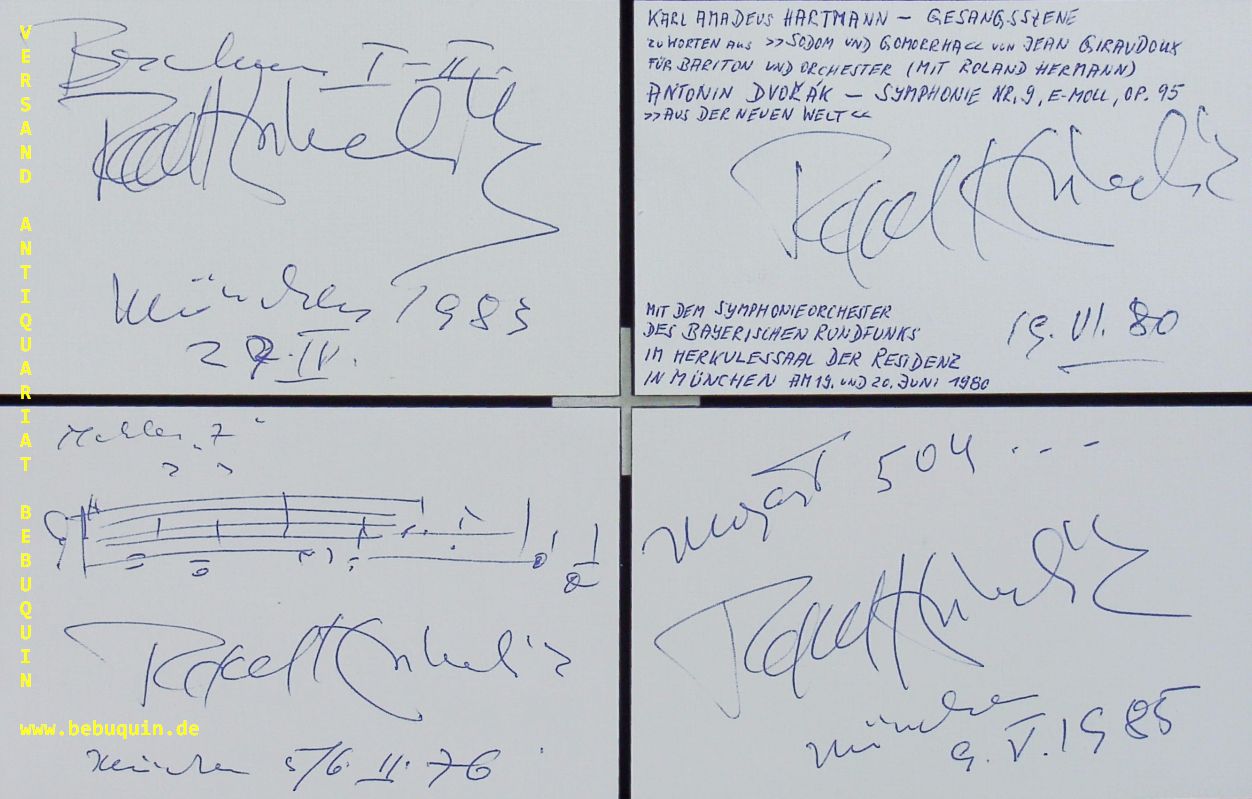 VERSAND ANTIQUARIAT BEBUQUIN
www.bebuquin.de
I-II
Rafael Kubelík
München 1983
27.IV.
KARL AMADEUS HARTMANN – GESANGSSZENE
ZU WORTEN AUS >>SODOM UND GOMORRHA<< VON JEAN GIRAUDOUX
FÜR BARITON UND ORCHESTER (MIT ROLAND HERMANN)
ANTONIN DVOŘÁK – SYMPHONIE NR. 9, E-MOLL, OP. 95
>>AUS DER NEUEN WELT<<
Rafael Kubelík
MIT DEM SYMPHONIEORCHESTER
DES BAYERISCHEN RUNDFUNKS
IM HERKULESSAAL DER RESIDENZ
IN MÜNCHEN AM 19. UND 20. JUNI 1980
19. VI. 80
Mahler „7“
Rafael Kubelík
München 5/6. II. 76
Mozart 504 ...
Rafael Kubelík
München
9. V. 1985